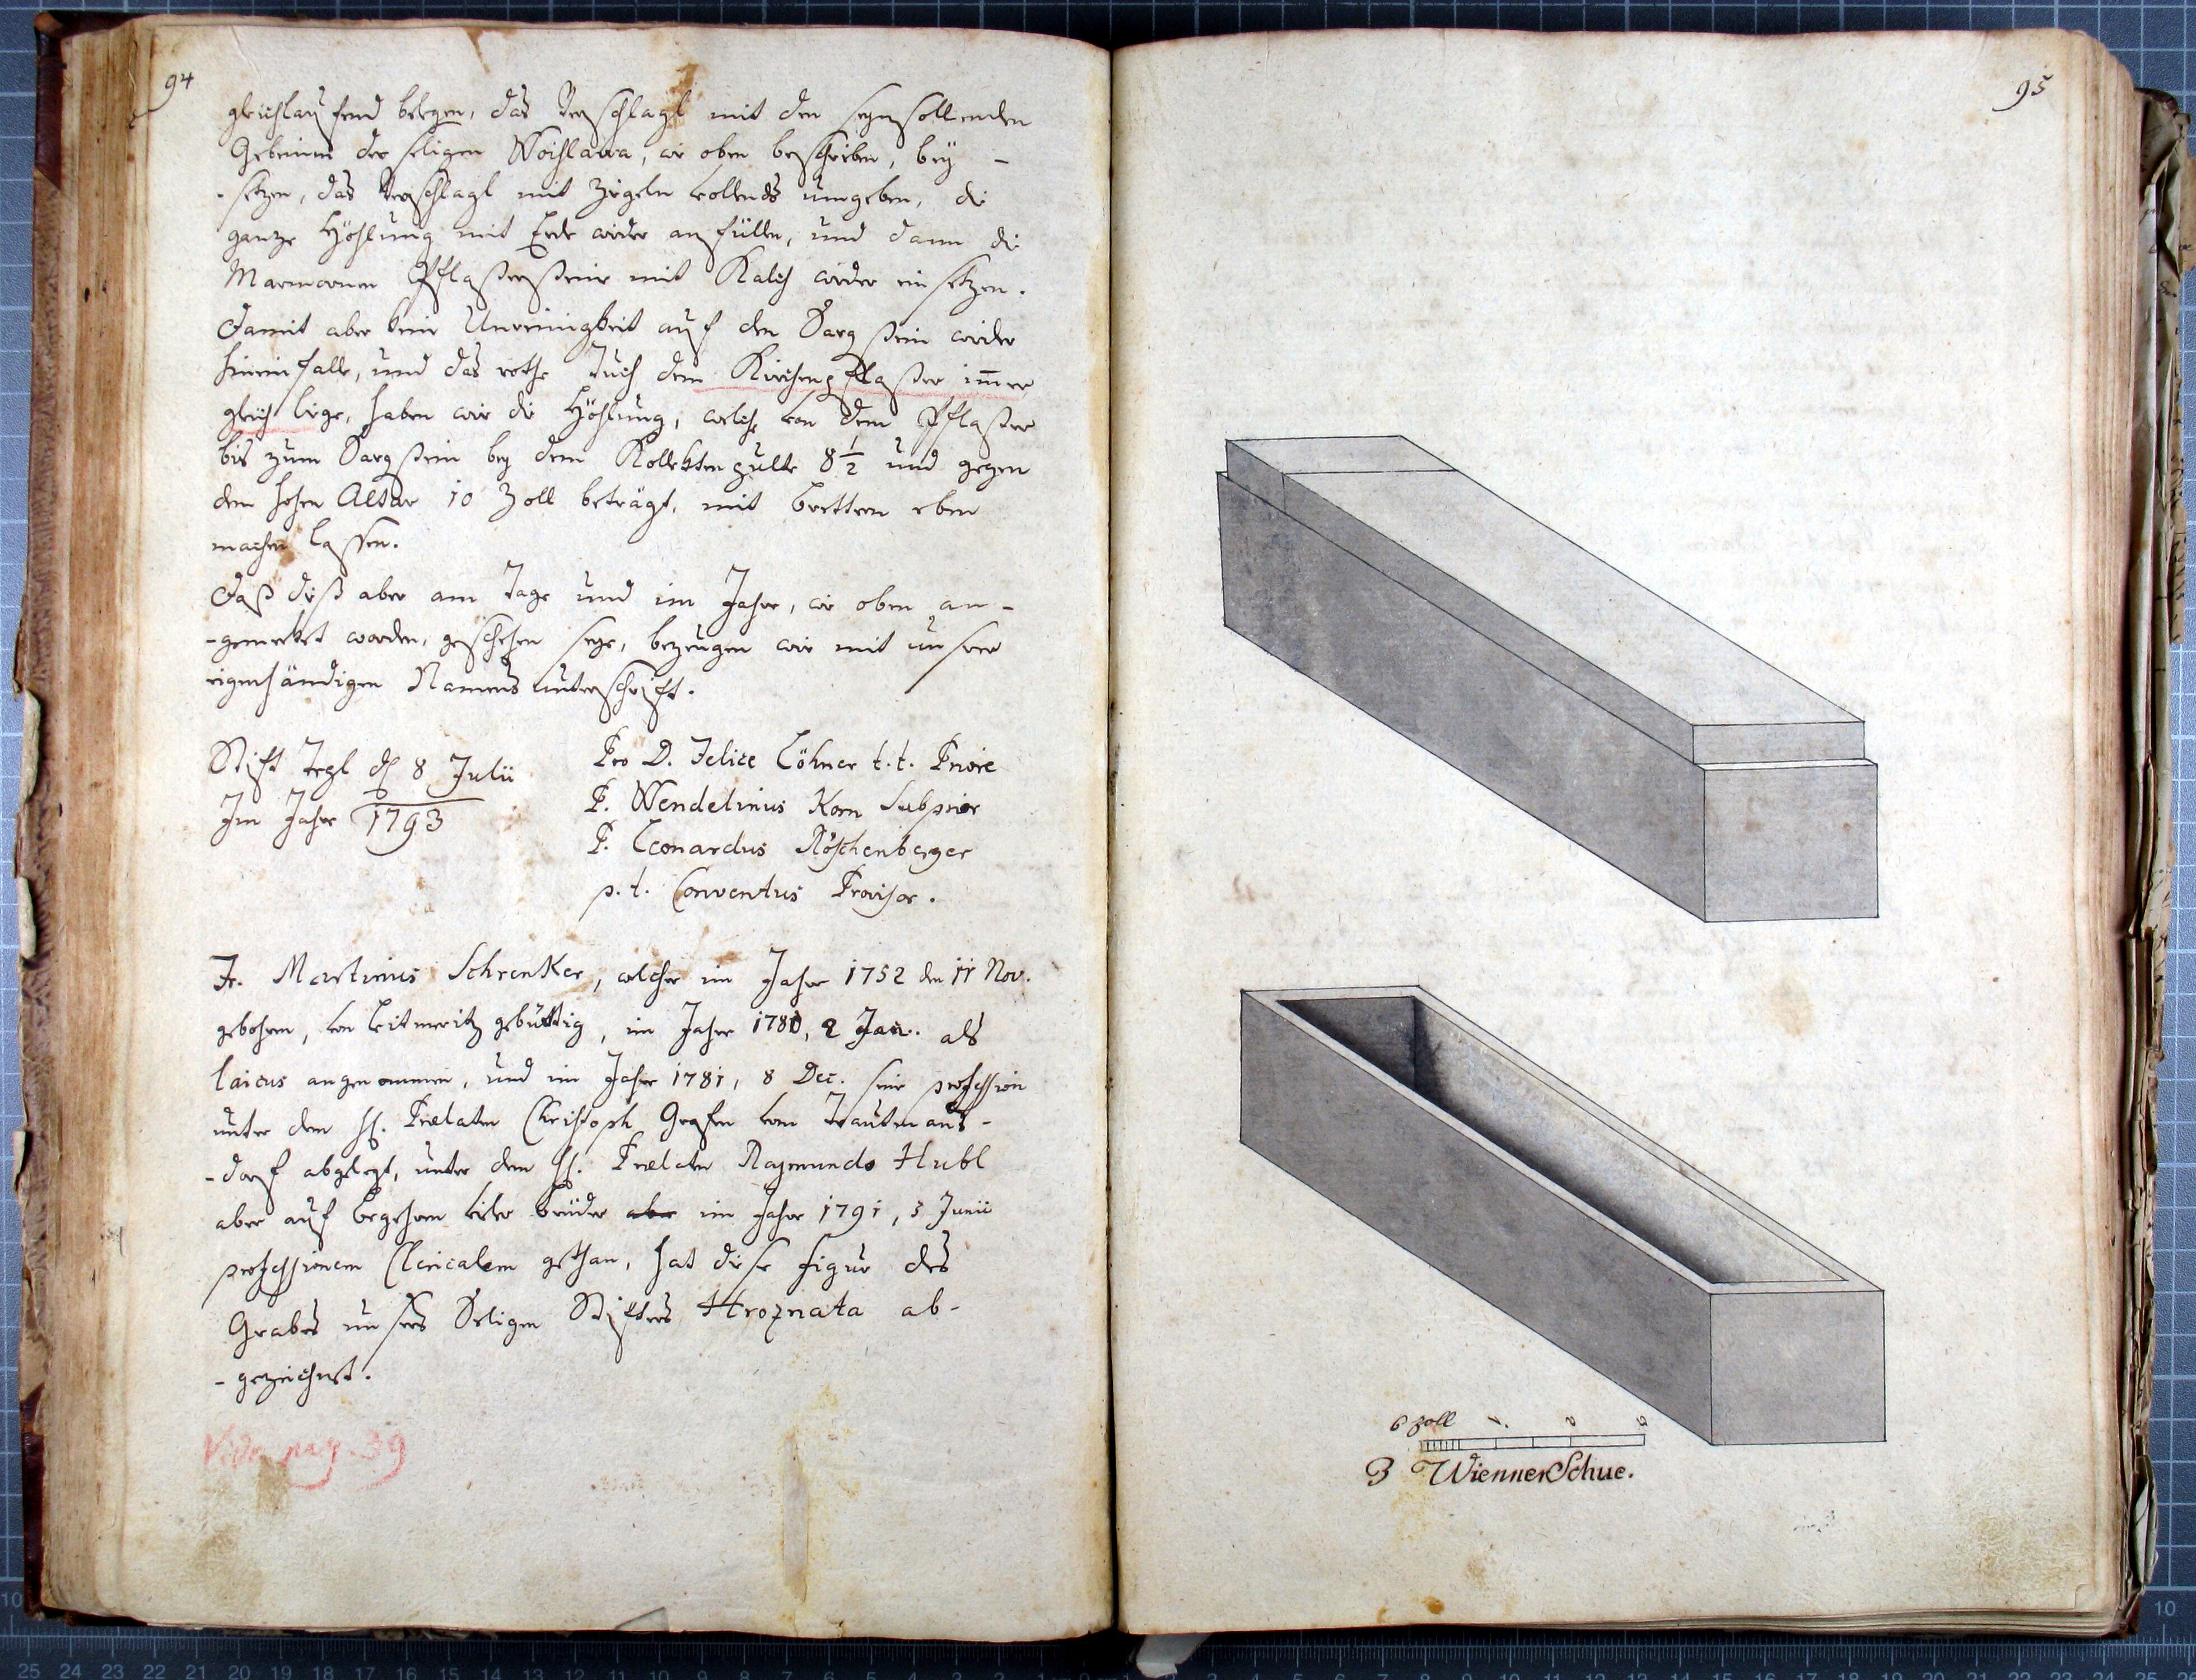 94
gleichlaufend belegen, das Verschlagl mit den seynsollenden
Gebeinen der seligen Woislawa, wie oben beschrieben, bey-
-setzen, das Verschlagl mit Ziegeln vollends umgeben, die
ganze Höhlung mit Erde wieder anfüllen, und dann die
Marmornen Pflastersteine mit Kalch wieder einsetzen.
Damit aber keine Unreinigkeit auf den Sargstein wieder
hineinfalle, und das rothe Tuch dem Kirchenpflaster im̄er
gleich liege, haben wir die Höhlung, welche von dem Pflaster
bis zum Sargstein bey dem Kollektenpulte 8 1/2 und gegen
dem hohen Altar 10 Zoll beträgt, mit brettern eben
machen lassen.
Daß dieß aber am Tage und im Jahre, wie oben an-
-gemerket worden, geschehen seye, bezeugen wir mit unserer
eigenhändigen Namensunterschrift.
Stift Tepl d 8 Julii
Im Jahre 1793
Pro D. Felice Löhner t.t. Priore
P. Wendelinus Korn Subprior
P. Leonardus Röschenberger
p.t. Conventus Provisor.
Fr. Martinius Schrenker, welcher im Jahre 1752 den 11 Nov.
gebohren, von Leitmeritz gebürtig, im Jahre 1780, 2 Jan. als
laicus angenommen, und im Jahre 1781, 8 Dec. seine profession
unter dem H. Prælaten Christoph Grafen von Trautmans-
-dorf abgelegt, unter dem H. Prælaten Raymundo Hubl
aber auf begehren vieler brüder aber im Jahre 1791, 3 Junii
professionem Clericalem gethan, hat diese figur des
Grabes unsers Seligen Stifters Hroznata ab-
-gezeichnet.
Vide pag. 39
95
6 Zoll 1. 2 3
3 Wienner Schue.